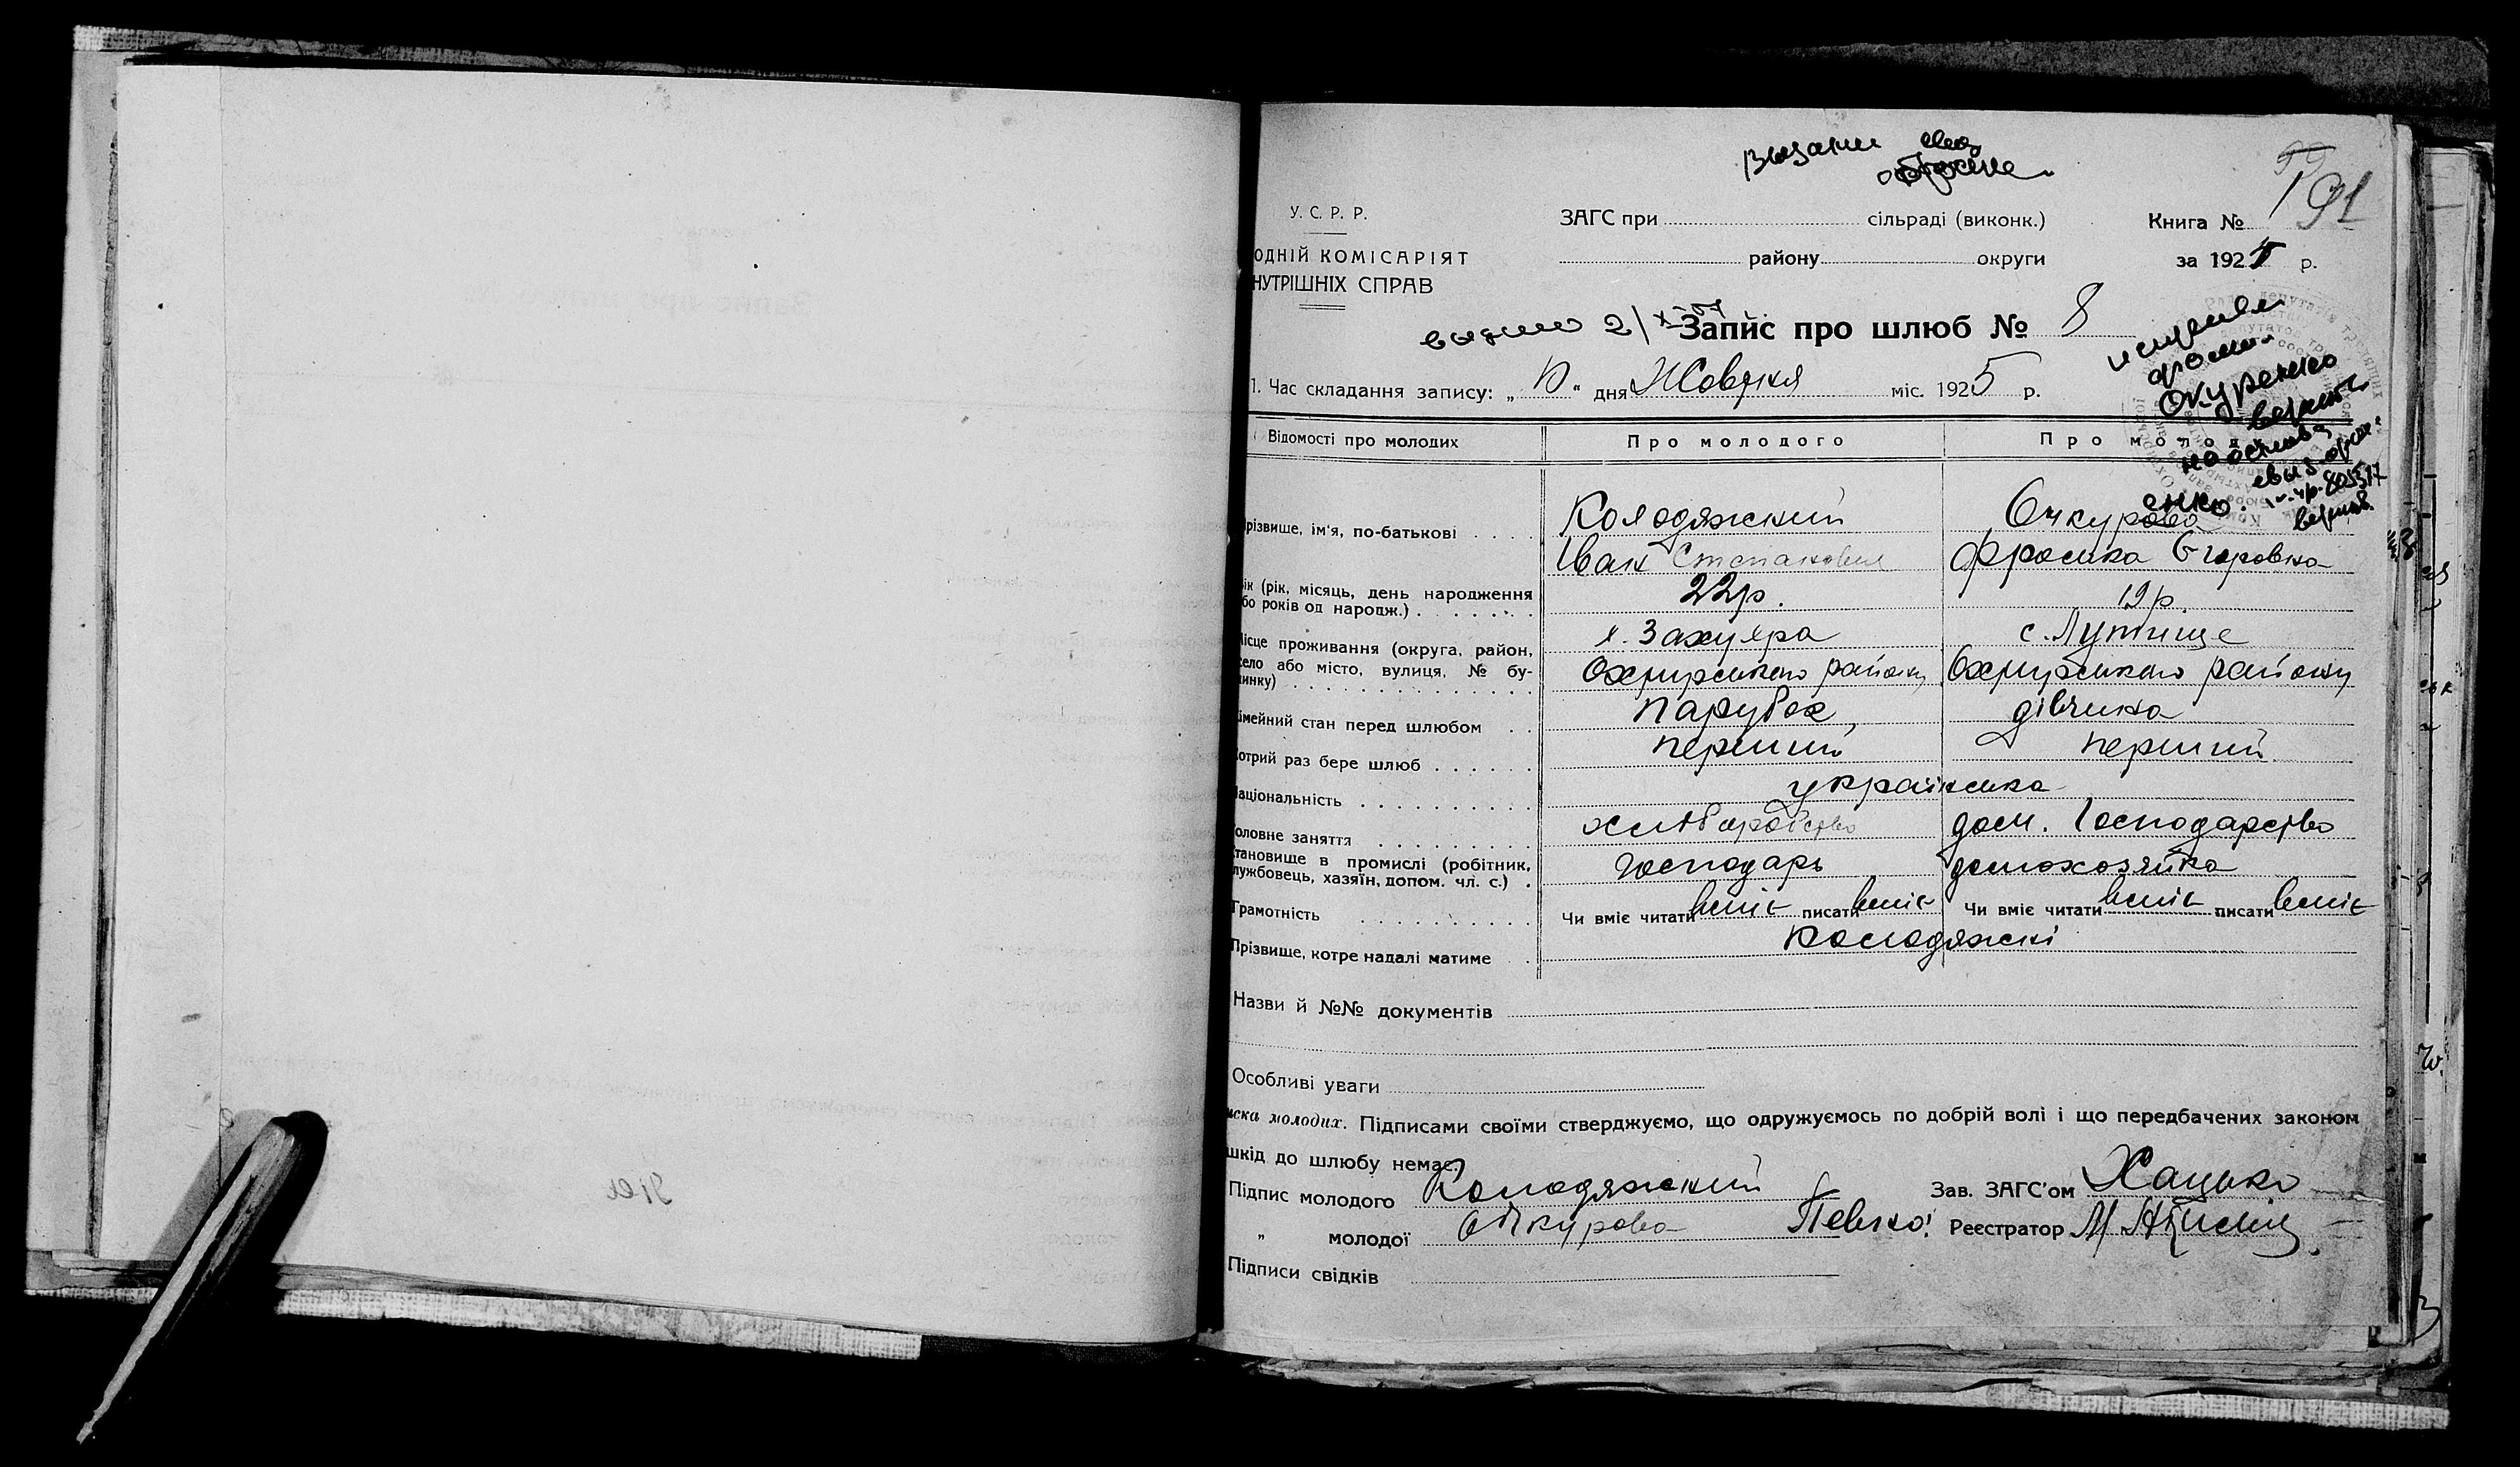 У. С. Р. Р.
ОДНІЙ КОМІСАРІЯТ
НУТРІШНІХ СПРАВ
ЗАГС при сільраді (виконк.)
району округи
Книга № 91
за 192 р.
Запис про шлюб № 8
1. Час складання запису: „ “ дня Жовтня міс. 1925 р.
Відомості про молодих
Про молодого
Про молод
різвище, ім'я, по-батькові
Колодяжский
Іван Степанович
Очкурова
енко.
Фросина Егоровна
ік (рік, місяць, день народження
бо років од народж.)
22р.
19р.
ісце проживання (округа, район,
село або місто, вулиця, № бу-
инку)
Охтирського району
с. Лутище
Охтирського району
імейний стан перед шлюбом
парубок
дівчина
отрий раз бере шлюб
перший
перший
аціональність
українська
оловне заняття
хліборобство
дом. господарство
тановище в промислі (робітник,
лужбовець, хазяїн, допом. чл. с.)
господарь
домохозяйка
Грамотність
Чи вміє читати вміє писати вміє
Чи вміє читати вміє писати вміє
Прізвище, котре надалі матиме
Колодяжскі
Назви й №№ документів
Особливі уваги
иска молодих. Підписами своїми стверджуємо, що одружуємось по добрій волі і що передбачених законом
шкід до шлюбу немає.
Підпис молодого Колодяжский
„ молодої Очкурова
Підписи свідків
Зав. ЗАГС'ом
Реєстратор